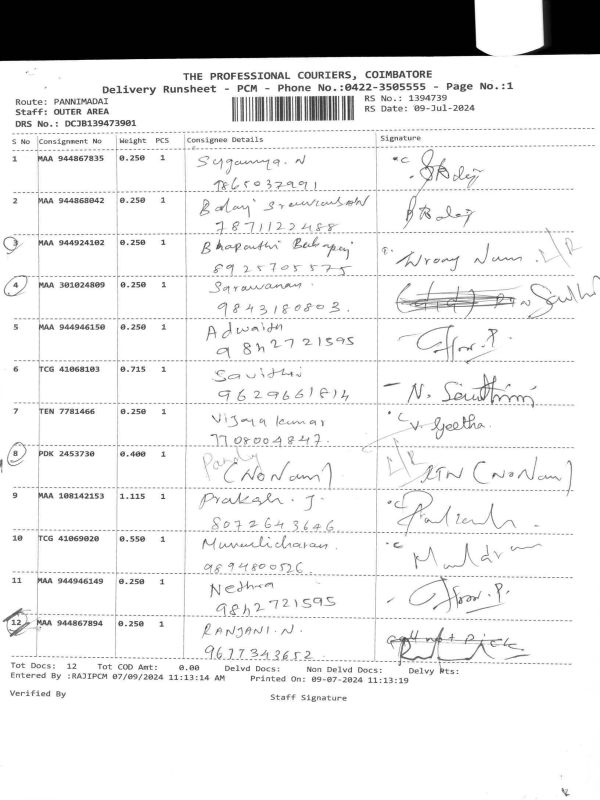 THE PROFESSIONAL COURIERS, COIMBATORE
Delivery Runsheet - PCM - Phone No.:0422-3505555 - Page No.:1
Route: PANNIMADAI
RS No.: 1394739
Staff: OUTER AREA
RS Date: 09-Jul-2024
DRS No.: DCJB139473901
S No Consignment No Weight PCS Consignee Details Signature
1 MAA 944867835 0.250 1 Sugannya. N
9865037991
2 MAA 944868042 0.250 1 Balaji
7871122488
3 MAA 944924102 0.250 1 Wrong Num.
8925705575
4 MAA 301024809 0.250 1 Sarawanan.
9843180803.
5 MAA 944946150 0.250 1 Adwaith
9842721595
6 TCG 41068103 0.715 1 Savithri N. Savithri
9629661814
7 TEN 7781466 0.250 1 Vijaya kumar V. Geetha.
7708004847.
8 PDK 2453730 0.400 1 (No Nam) RTN (No Nam)
9 MAA 108142153 1.115 1 Prakash. J.
8072643646
10 TCG 41069020 0.550 1 Muralicharan.
9894800526.
11 MAA 944946149 0.250 1 Nethra
9842721595
12 MAA 944867894 0.250 1 RANJANI. N.
9677343652.
Tot Docs: 12 Tot COD Amt: 0.00 Delvd Docs: Non Delvd Docs: Delvy Pts:
Entered By :RAJIPCM 07/09/2024 11:13:14 AM Printed On: 09-07-2024 11:13:19
Verified By Staff Signature